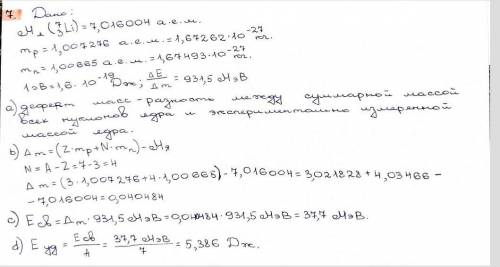 7. Дано:
Mя (⁷₃Li) = 7,016004 а.е.м.
mp = 1,007276 а.е.м. = 1,67262·10⁻²⁷ кг.
mn = 1,00865 а.е.м. = 1,67493·10⁻²⁷ кг.
1эВ = 1,6·10⁻¹⁹ Дж; ΔE/Δm = 931,5 МэВ
a) дефект масс - разность между суммарной массой
всех нуклонов ядра и экспериментально измеренной
массой ядра.
b) Δm = (Z·mp + N·mn) - Mя
N = A - Z = 7 - 3 = 4
Δm = (3·1,007276 + 4·1,00865) - 7,016004 = 3,021828 + 4,03466 -
- 7,016004 = 0,040484
c) Eсв = Δm · 931,5 МэВ = 0,040484 · 931,5 МэВ = 37,7 МэВ.
d) Eуд = Eсв/A = 37,7 МэВ/7 = 5,386 Дж.